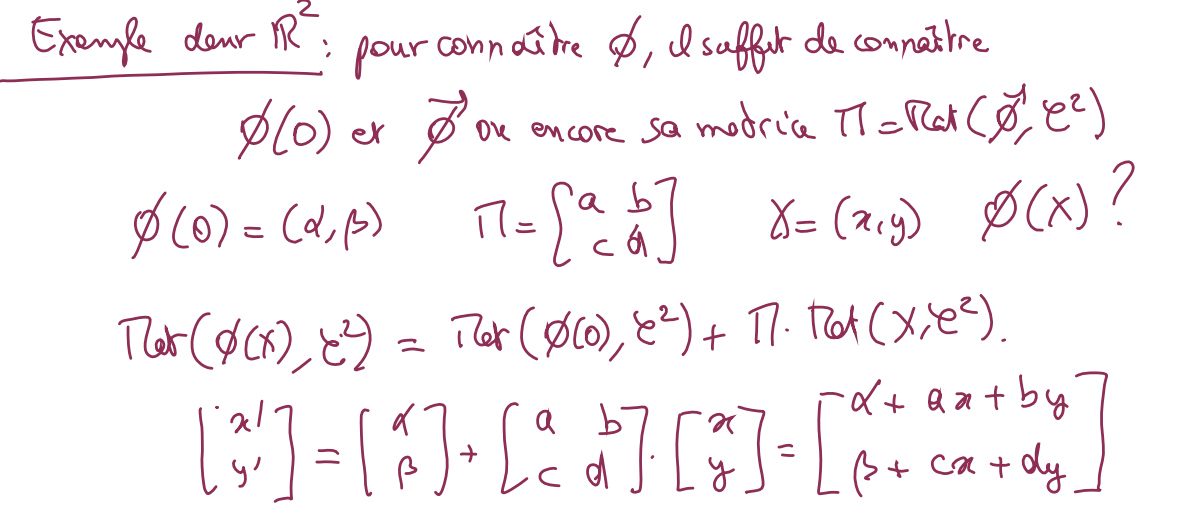 Exemple dans ℝ² : pour connaître ϕ, il suffit de connaître
ϕ(0) et ϕ⃗ ou encore sa matrice M = Mat(ϕ⃗, C²)
ϕ(0) = (α, β) M = [a b; c d] X = (x, y) ϕ(X) ?
Mat(ϕ(X), C²) = Mat(ϕ(0), C²) + M · Mat(X, C²).
[x'; y'] = [α; β] + [a b; c d] · [x; y] = [α + ax + by; β + cx + dy]